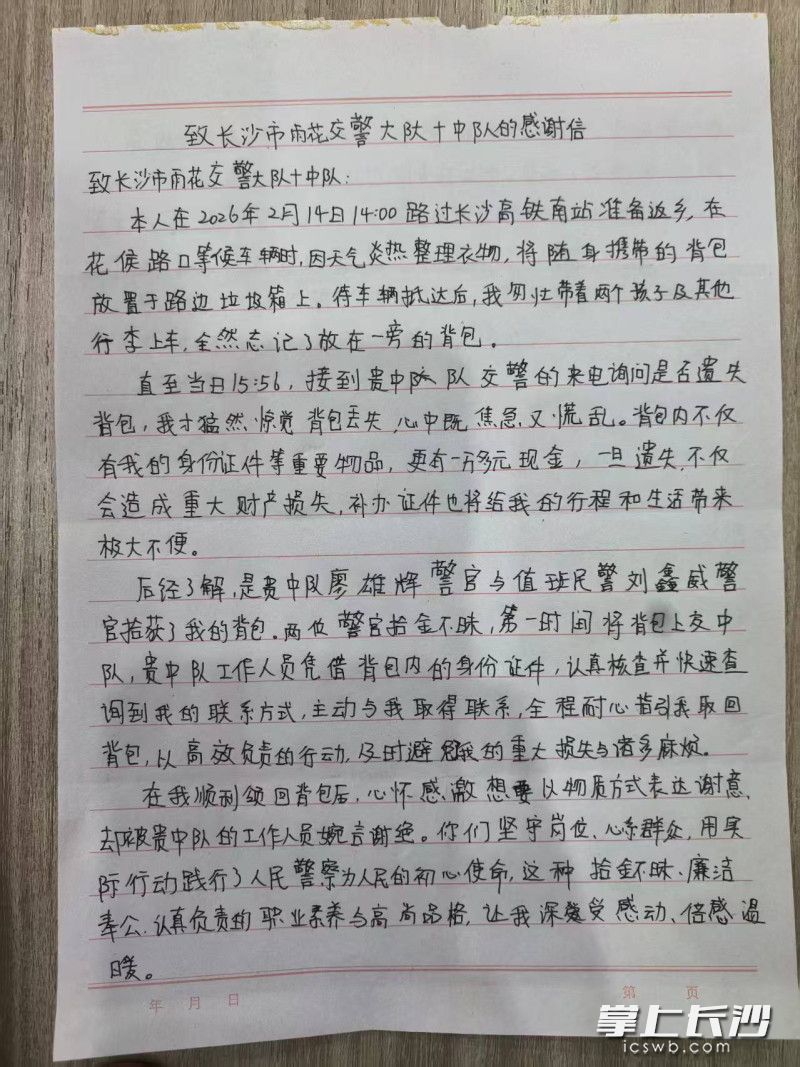 致长沙市雨花交警大队十中队的感谢信
致长沙市雨花交警大队十中队:
本人在2026年2月14日14:00路过长沙高铁南站准备返乡,在
花侯路口等候车辆时,因天气炎热整理衣物,将随身携带的背包
放置于路边垃圾箱上。待车辆抵达后,我匆忙带着两个孩子及其他
行李上车,全然忘记了放在一旁的背包。
直至当日15:56,接到贵中队队交警的来电询问是否遗失
背包,我才猛然惊觉背包丢失,心中既焦急又慌乱。背包内不仅
有我的身份证件等重要物品,更有一万多元现金,一旦遗失,不仅
会造成重大财产损失,补办证件也将给我的行程和生活带来
极大不便。
后经了解,是贵中队廖雄辉警官与值班民警刘鑫威警
官拾获了我的背包。两位警官拾金不昧,第一时间将背包上交中
队,贵中队工作人员凭借背包内的身份证件,认真核查并快速查
询到我的联系方式,主动与我取得联系,全程耐心指引我取回
背包,以高效负责的行动,及时避免我的重大损失与诸多麻烦。
在我顺利领回背包后,心怀感激想要以物质方式表达谢意,
却被贵中队的工作人员婉言谢绝。你们坚守岗位、心系群众,用实
际行动践行了人民警察为人民的初心使命,这种拾金不昧、廉洁
奉公、认真负责的职业素养与高尚品格,让我深受感动、倍感温
暖。
年 月 日 第 页
掌上长沙
icswb.com